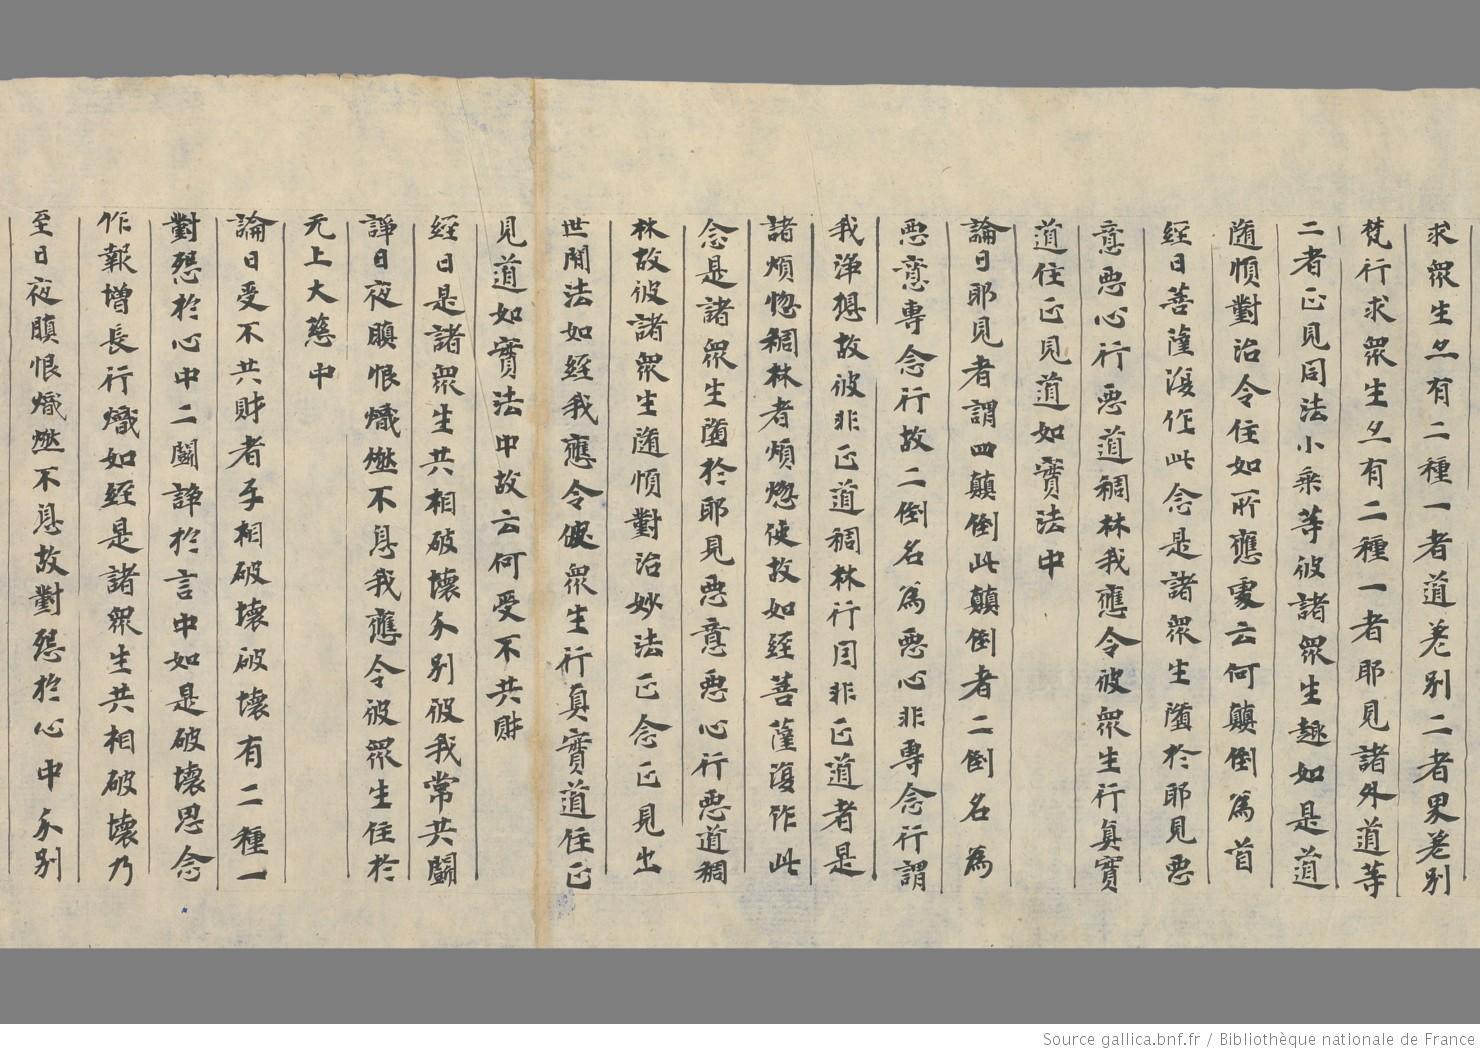 求眾生亦有二種一者道差別二者界差別
梵行求眾生亦有二種一者耶見諸外道等
二者正見同法小乘等彼諸眾生趣如是道
随順對治令住如所應處云何顛倒為首
經曰菩薩復作此念是諸眾生墮於耶見惡
意惡心行惡道稠林我應令彼眾生行真實
道住正見道如實法中
論曰耶見者謂四顛倒此顛倒者二倒名為
惡意專念行故二倒名為惡心非專念行謂
我淨想故彼非正道稠林行因非正道者是
諸煩惱稠林者煩惱使故如經菩薩復作此
念是諸眾生墮於耶見惡意惡心行惡道稠
林故彼諸眾生随順對治妙法正念正見出
世間法如經我應令彼眾生行真實道住正
見道如實法中故云何受不共財
經曰是諸眾生共相破壞分別彼我常共鬪
諍日夜瞋恨熾燃不息我應令彼眾生住於
无上大慈中
論曰受不共財者手相破壞破壞有二種一
對怨於心中二鬪諍於言中如是破壞思念
作報增長行熾如經是諸眾生共相破壞乃
至日夜瞋恨熾燃不息故對怨於心中分別
Source gallica.bnf.fr / Bibliothèque nationale de France